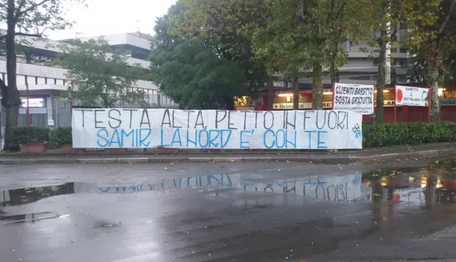 TESTA ALTA PETTO IN FUORI
SAMIR, LA NORD E' CON TE
CLIENTI BARETTO
SOSTA GRATUITA
BARETTO